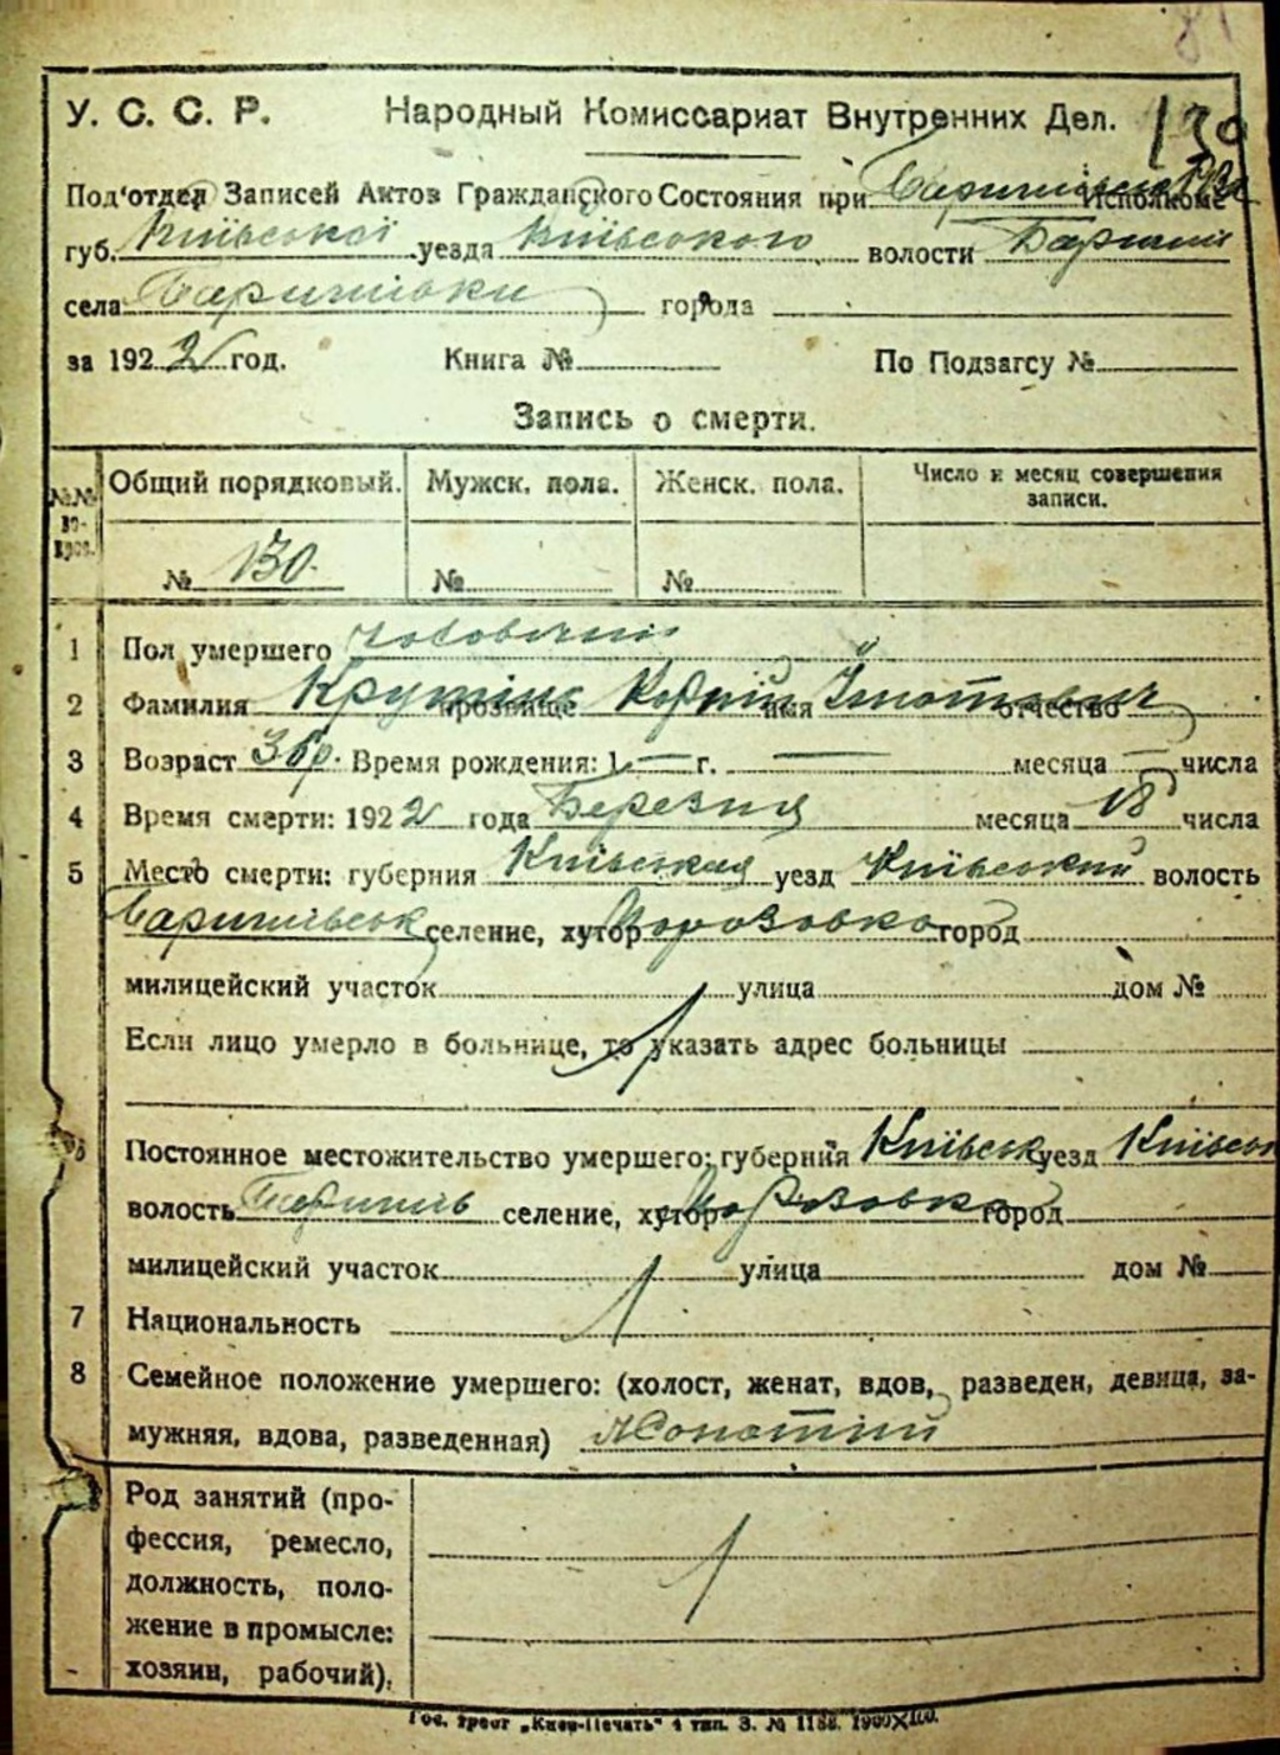 81
У. С. С. Р. Народный Комиссариат Внутренних Дел. 130
Под'отдел Записей Актов Гражданского Состояния при Исполкоме
губ. Київської уезда Київського волости Баришів
села Баришівки города
за 1922 год. Книга № По Подзагсу №
Запись о смерти.
№№ во-прос. Общий порядковый. Мужск. пола. Женск. пола. Число и месяц совершения
записи.
№ 130. № №
1 Пол умершего чоловічий
2 Фамилия прозвище Корній имя отчество
3 Возраст 36 р. Время рождения: 1 — г. — месяца — числа
4 Время смерти: 1922 года Березня месяца 18 числа
5 Место смерти: губерния Київская уезд Київський волость
Баришівськ селение, хутор Морозовка город
милицейский участок улица дом №
Если лицо умерло в больнице, то указать адрес больницы
6 Постоянное местожительство умершего: губерния Київськ уезд Київськ
волость Баришів селение, хутор Морозовка город
милицейский участок улица дом №
7 Национальность
8 Семейное положение умершего: (холост, женат, вдов, разведен, девица, за-
мужняя, вдова, разведенная) Жонатий
Род занятий (про-
фессия, ремесло,
должность, поло-
жение в промысле:
хозяин, рабочий).
Гос. трест „Киев-Печать“ 4 тип. З. № 1188.